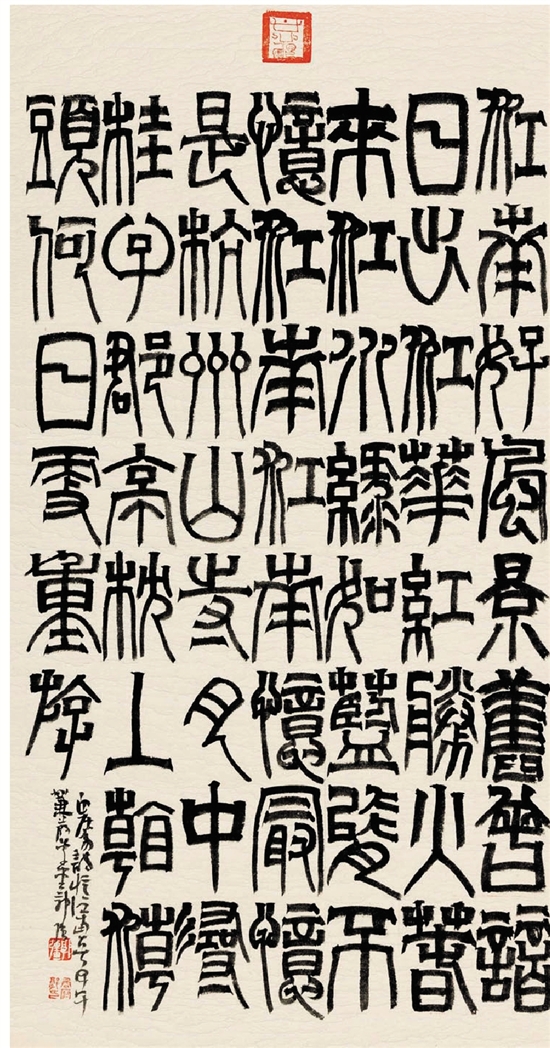 江南好風景舊曾諳
日出江華紅勝火春
來江水綠如藍能不
憶江南江南憶最憶
是杭州山寺月中尋
桂子郡亭枕上看潮
頭何日更重游
白居易詩憶江南 甲午